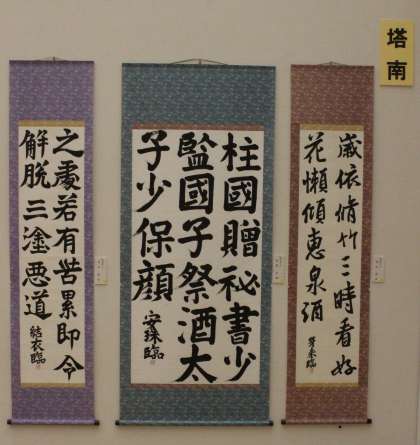 塔南
歳依脩竹三時看好
花懶傾恵泉酒
臨
柱國贈祕書少
監國子祭酒太
子少保顔
安珠臨
之處若有苦累即令
解脱三塗悪道
結衣臨